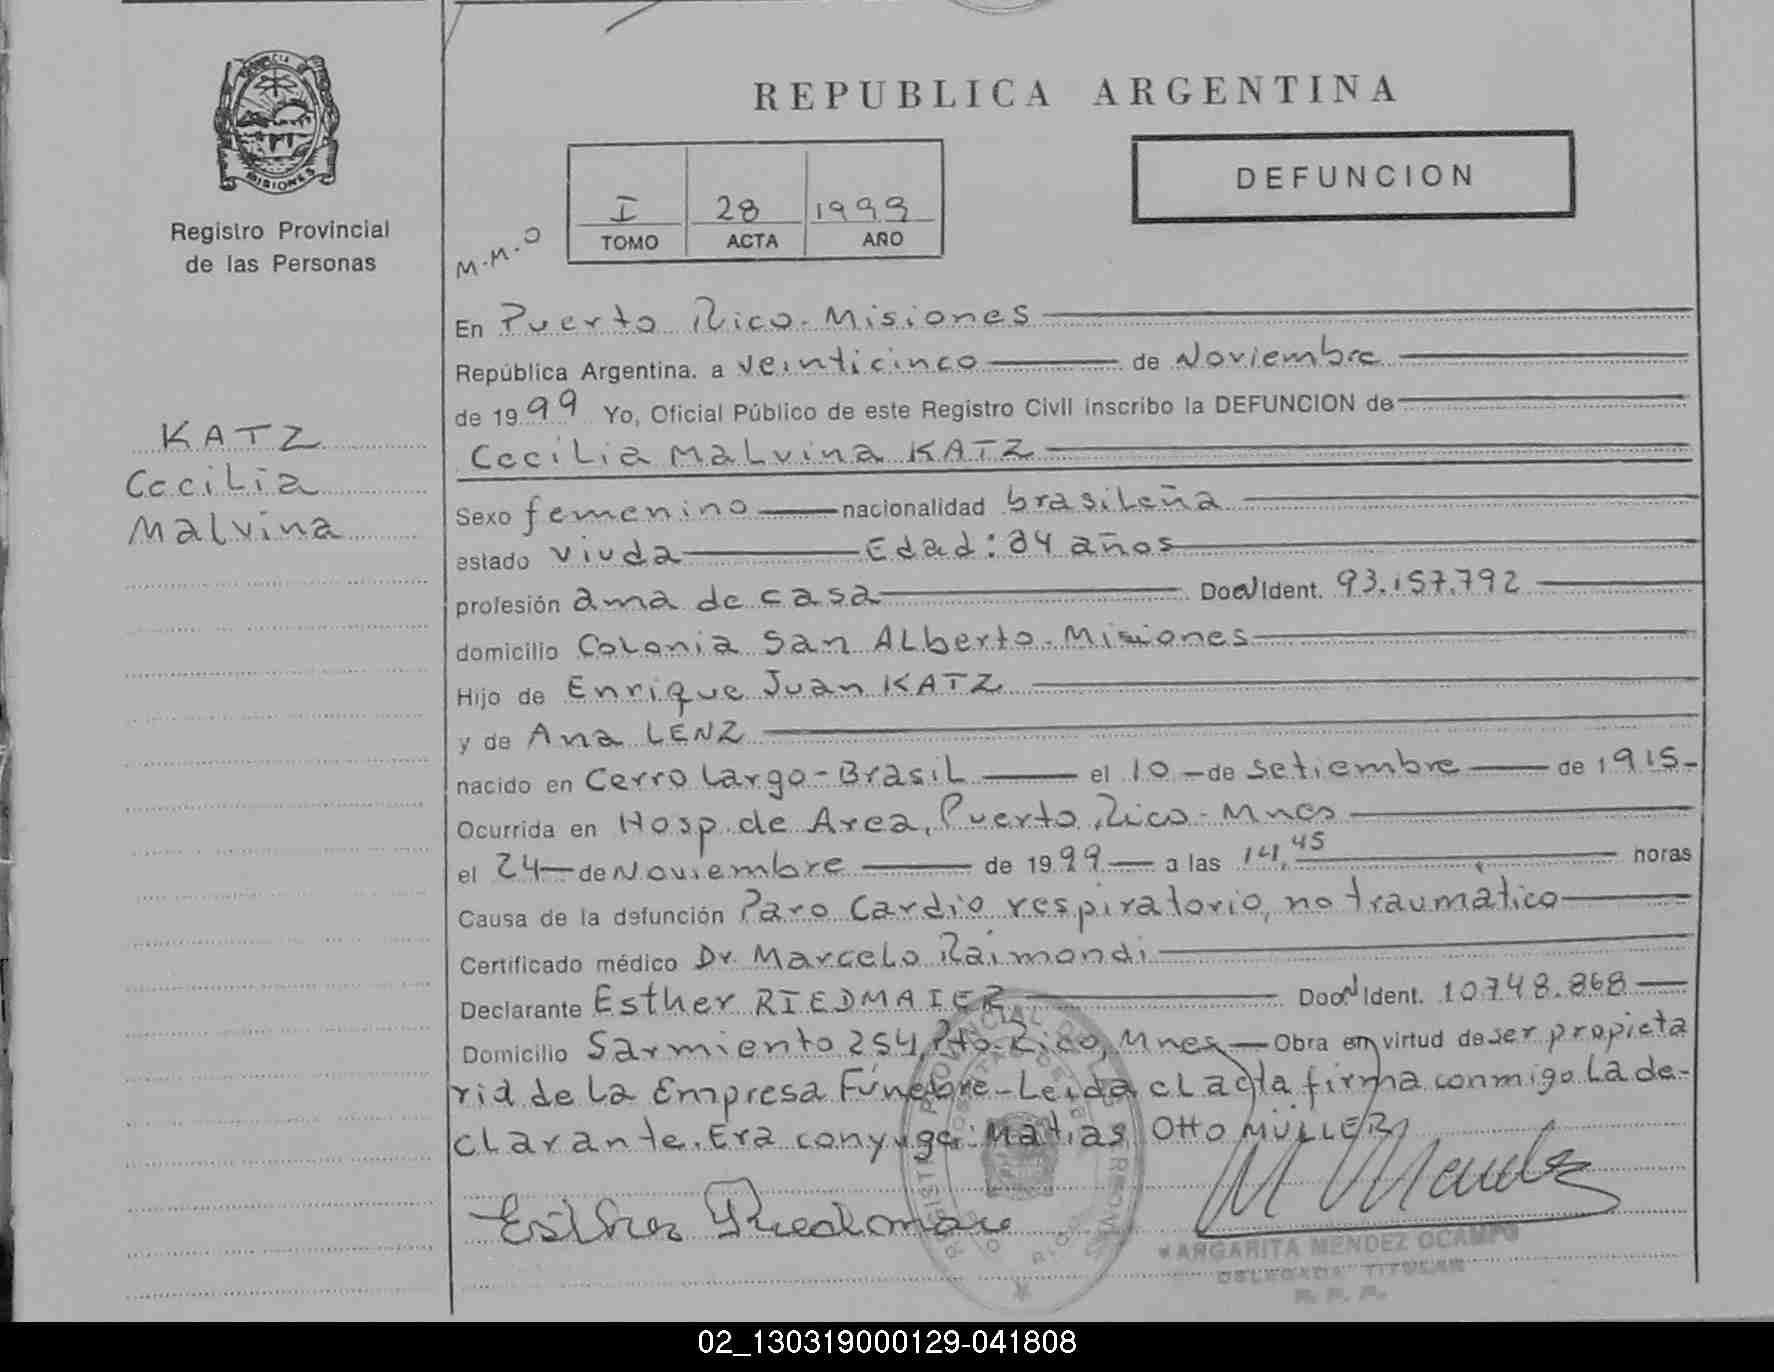 PROVINCIA DE
MISIONES
Registro Provincial
de las Personas
KATZ
Cecilia
Malvina
REPUBLICA ARGENTINA
DEFUNCION
I 28 1999
TOMO ACTA AÑO
M.M.O
En Puerto Rico - Misiones
República Argentina. a veinticinco de Noviembre
de 1999 Yo, Oficial Público de este Registro Civil inscribo la DEFUNCION de
Cecilia Malvina KATZ
Sexo femenino nacionalidad brasileña
estado viuda Edad: 84 años
profesión ama de casa Doc Ident. 93.157.792
domicilio Colonia San Alberto - Misiones
Hijo de Enrique Juan KATZ
y de Ana LENZ
nacido en Cerro Largo - Brasil el 10 de setiembre de 1915-
Ocurrida en Hosp. de Area, Puerto Rico - Mnes
el 24 de Noviembre de 1999 a las 14,45 horas
Causa de la defunción Paro Cardio respiratorio, no traumático
Certificado médico Dr. Marcelo Raimondi
Declarante Esther RIEDMAIER Doc Ident. 10.748.868
Domicilio Sarmiento 254, Pto. Rico, Mnes Obra en virtud de ser propieta
ria de la Empresa Fúnebre - Leida el acta firma conmigo la de-
clarante. Era conyuge: Matias Otto MÜLLER
Esther Riedmaie
M Mendez
MARGARITA MENDEZ OCAMPO
DELEGADA TITULAR
R. P. P.
02_130319000129-041808